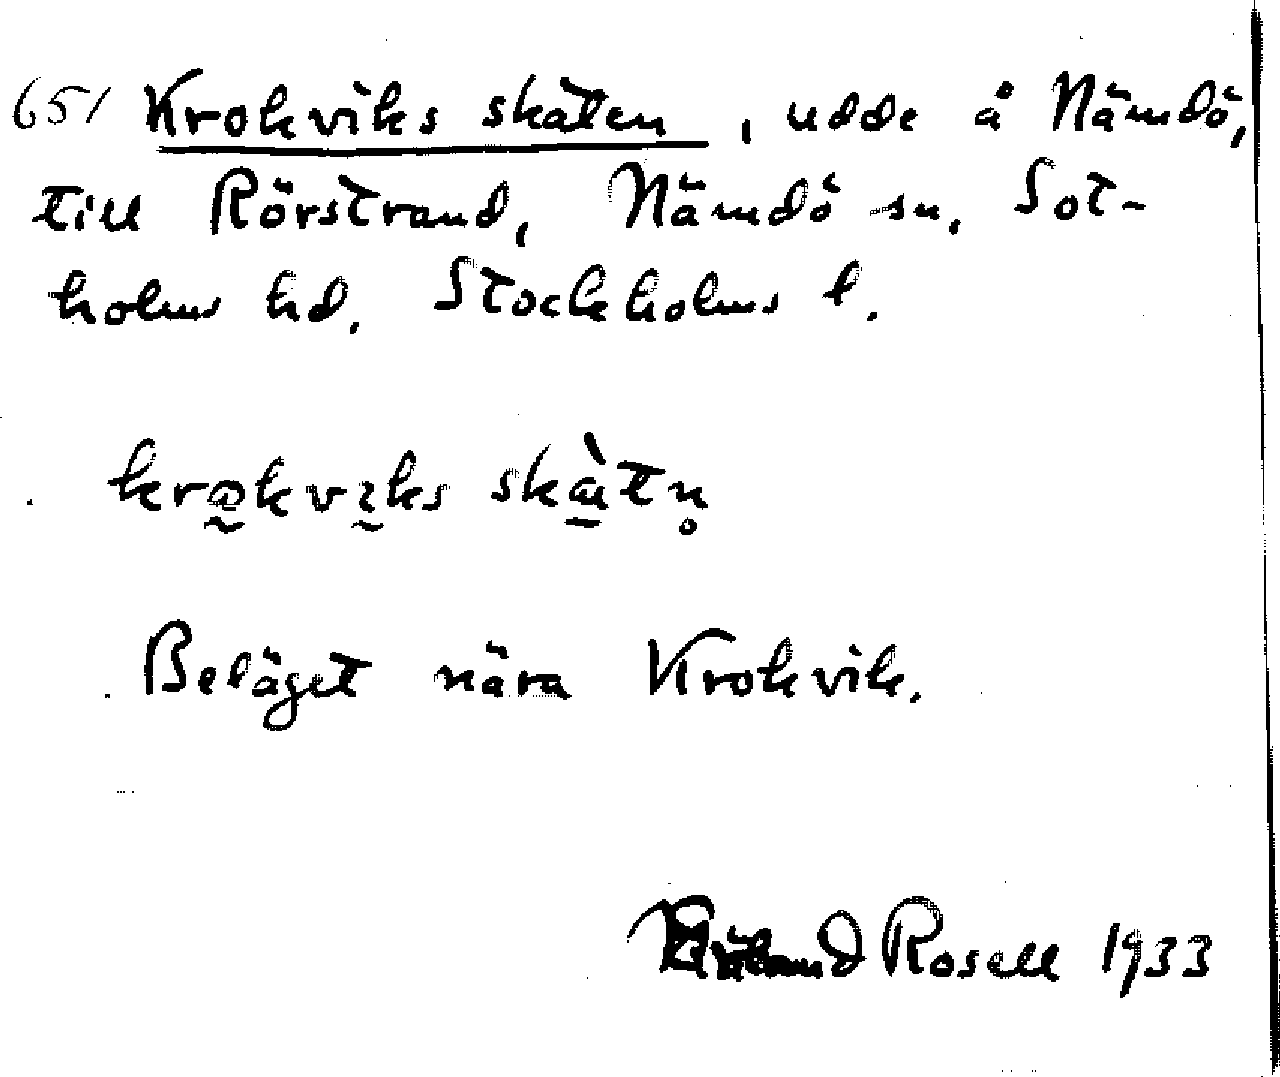 651 Krokviks skaten, udde å Nämdö,
till Rörstrand, Nämdö sn, Sot-
holms hd. Stockholms l.
skàtn̥
Beläget nära Krokvik.
Rosell 1933